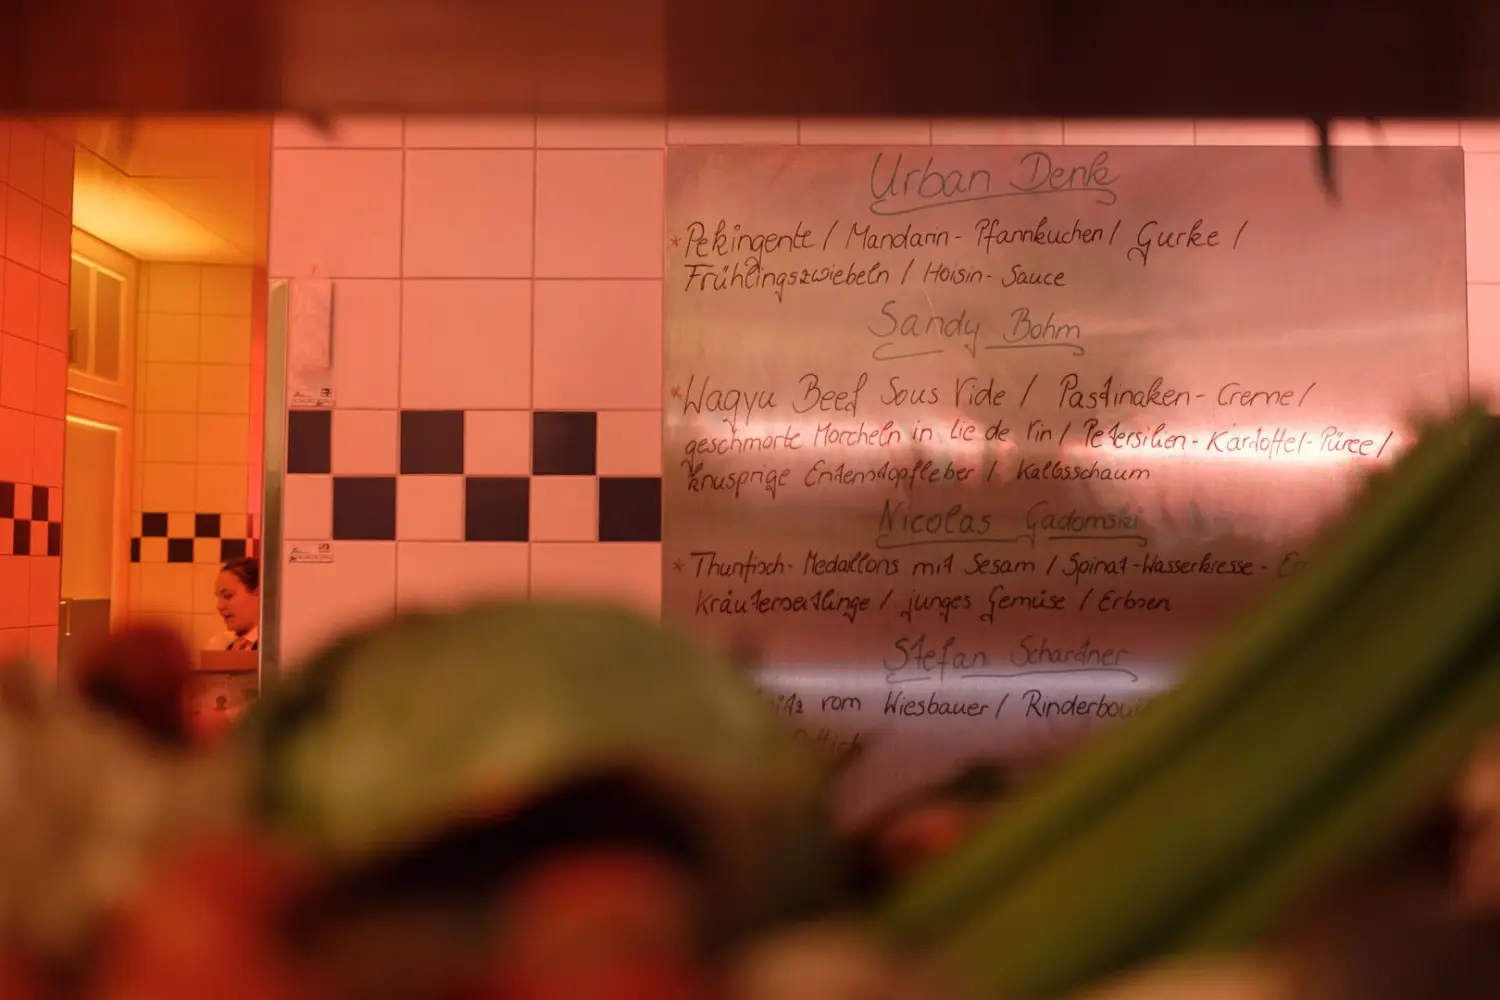 Urban Denk
* Pekingente / Mandarin - Pfannkuchen / Gurke /
Frühlingszwiebeln / Hoisin - Sauce
Sandy Bohm
* Wagyu Beef Sous Vide / Pastinaken - Creme /
geschmorte Morcheln in Lie de Vin / Petersilien - Kartoffel - Püree /
knusprige Entenstopfleber / Kalbsschaum
Nicolas Gadomski
* Thunfisch - Medaillons mit Sesam / Spinat - Wasserkresse -
Kräuterseitlinge / junges Gemüse / Erbsen
Stefan Schardner
vom Wiesbauer /